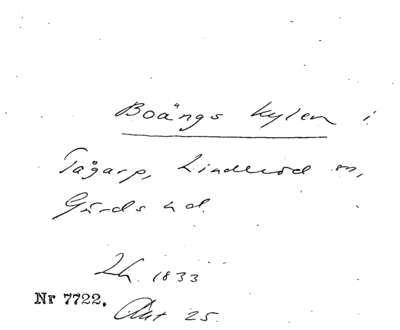 Boängs kylen i
Tågarp, Linderöd sn,
Gärds hd.
Lh. 1833
Nr 7722. Akt 25.